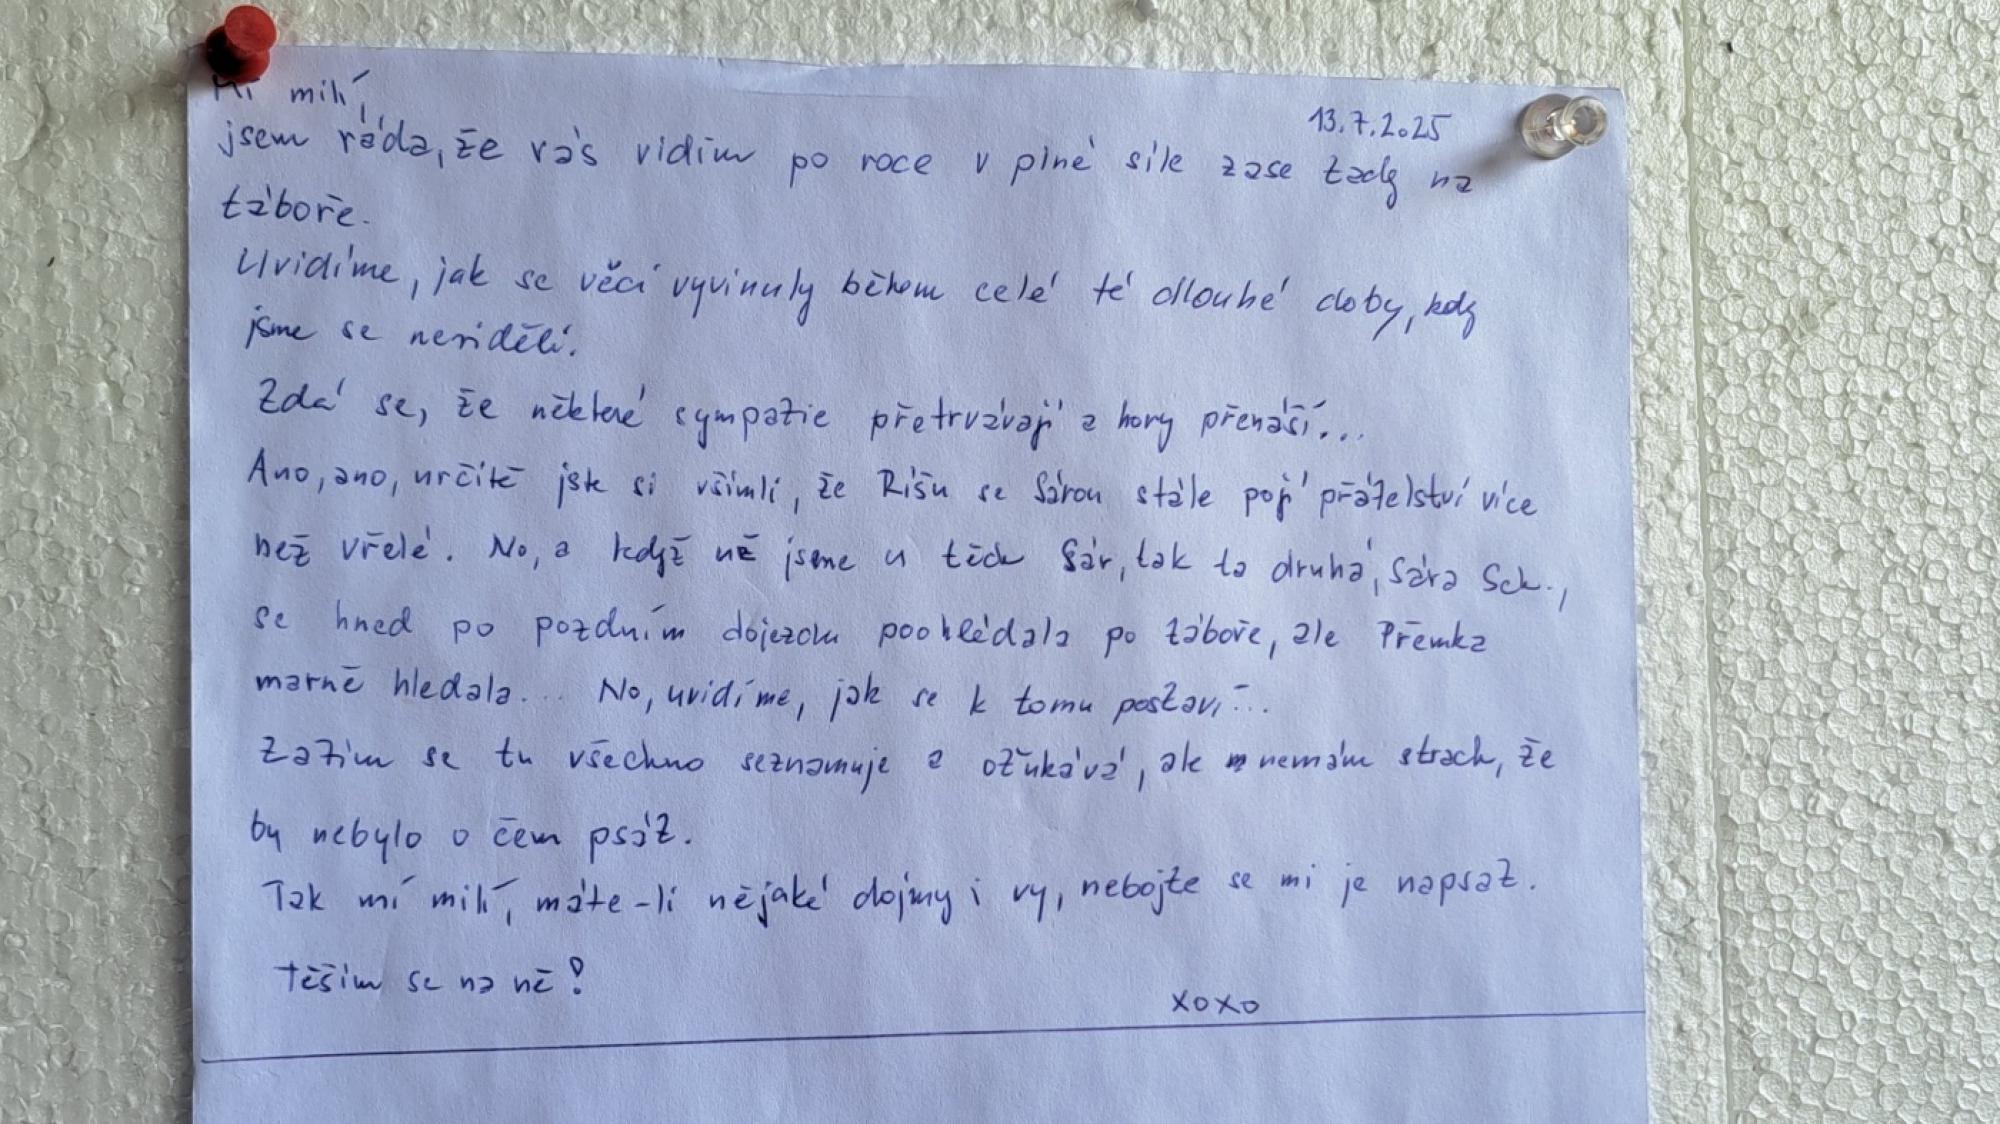 Mí milí,
13.7.2025
jsem ráda, že vás vidím po roce v plné síle zase tady na
táboře.
Uvidíme, jak se věci vyvinuly během celé té dlouhé doby, kdy
jsme se neviděli.
Zdá se, že některé sympatie přetrvávají a hory přenáší...
Ano, ano, určitě jste si všimli, že Ríšu se Sárou stále pojí přátelství více
než vřelé. No, a když už jsme u těch Sár, tak ta druhá, Sára Sch.,
se hned po pozdním dojezdu poohlédala po táboře, ale Přemka
marně hledala... No, uvidíme, jak se k tomu postaví...
Zatím se tu všechno seznamuje a oťukává, ale nemám strach, že
by nebylo o čem psát.
Tak mí milí, máte-li nějaké dojmy i vy, nebojte se mi je napsat.
Těším se na ně!
xoxo